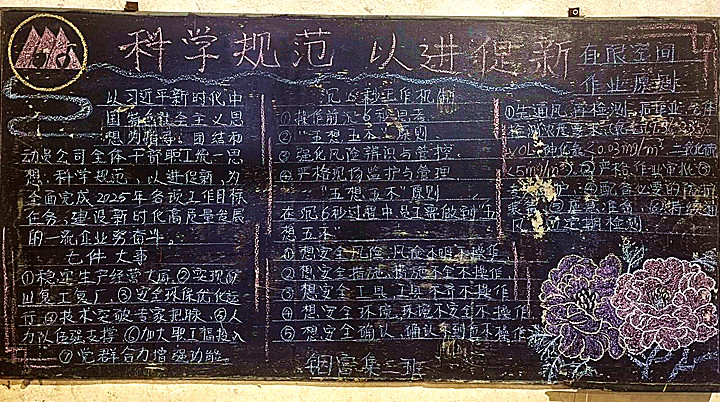 科学规范 以进促新
以习近平新时代中
国特色社会主义思
想为指导：团结和
动员公司全体干部职工统一思
想、科学规范、以进促新，为
全面完成2025年各项工作目标
任务，建设新时代高质量发展
的一流企业努奋斗。
七件大事
①稳定生产经营大局，②实现矿
山复工复产，③安全环保优化运
行，④技术突破专家把脉，⑤人
力队伍强支撑 ⑥加大职工福投入
⑦党群合力增强功能。
沉6秒工作机制
①操作前沉6秒思考
②“五想五不”原则
③强化风险辨识与管控
④严格现场监护与管理
“五想五不”原则
在沉6秒过程中员工需做到“五
想五不”
①想安全风险，风险不明不操作
②想安全措施，措施不全不操作
③想安全工具，工具不齐不操作
④想安全环境，环境不安全不操作
⑤想安全确认，确认不到位不操作
铟富集二班
有限空间
作业原则
①先通风，再检测，后作业：气体
检测浓度要求
<5mg/m³）②严格作业审批③
④配备必要的防护
装备 ⑤应急准备 ⑥持续通
风 ⑦定期检测